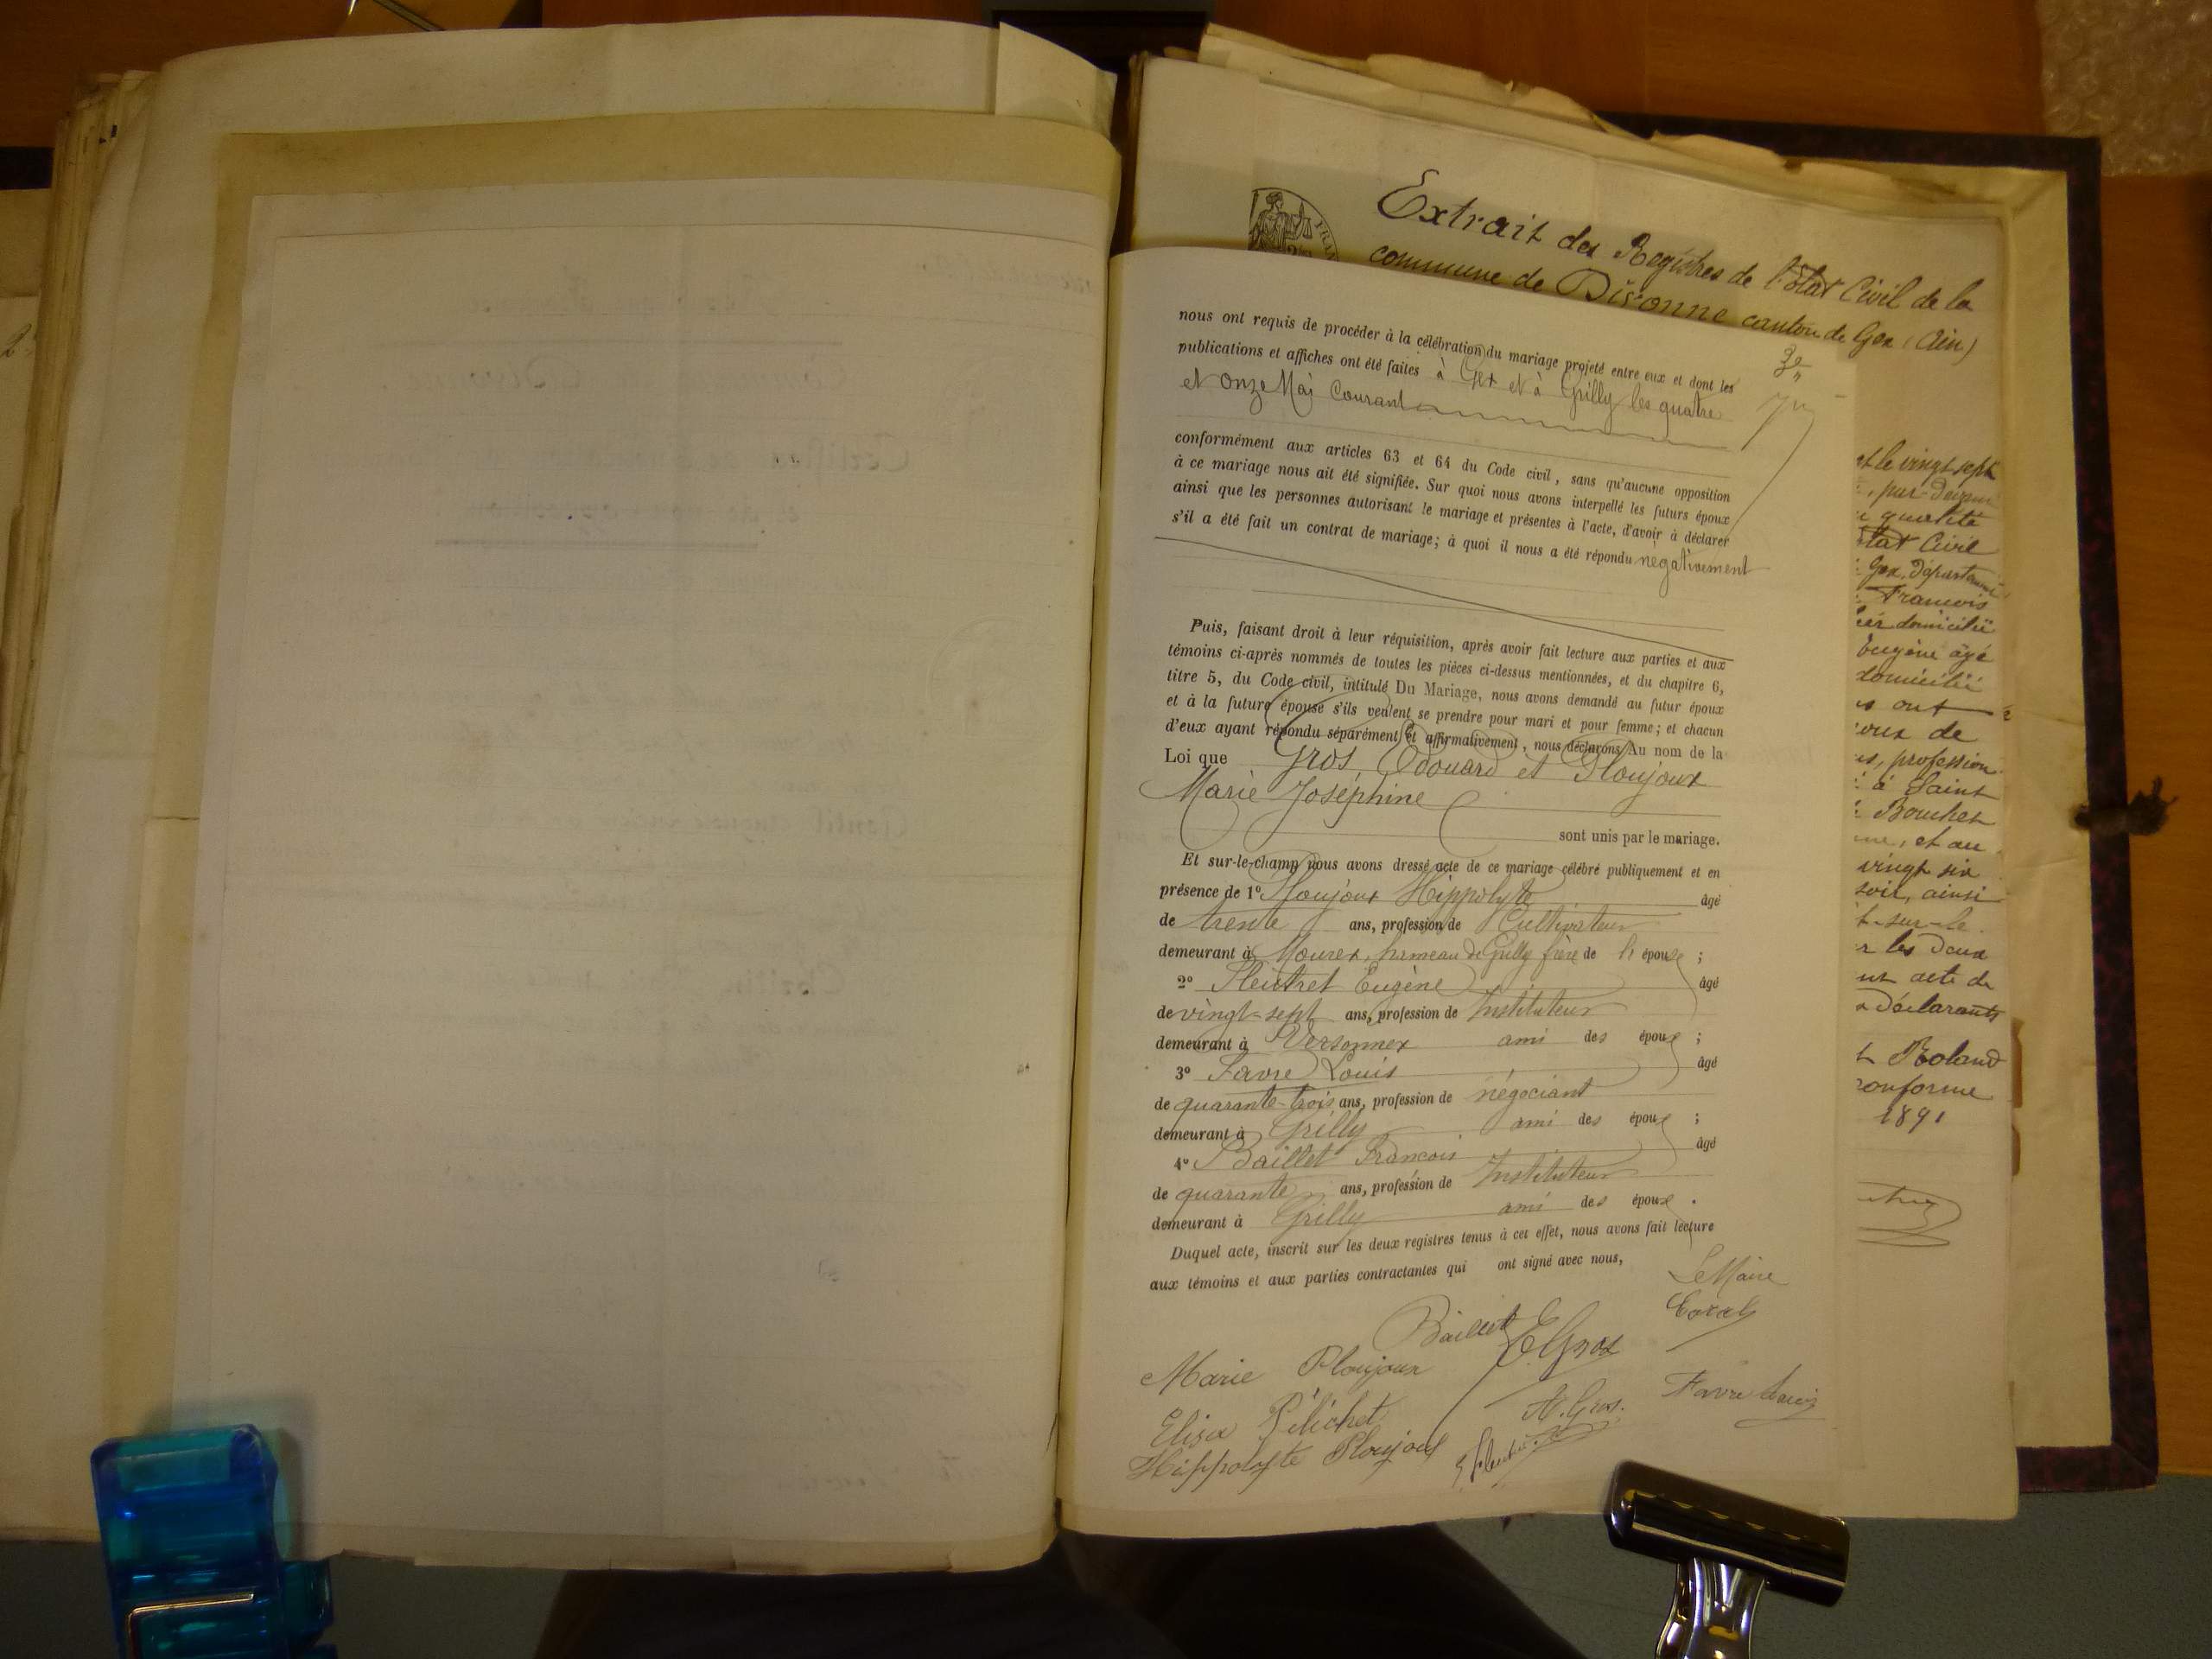 Extrait des Registres de l'état Civil de la
commune de Divonne canton de Gex (Ain)
nous ont requis de procéder à la célébration du mariage projeté entre eux et dont les
publications et affiches ont été faites à Gex et à Grilly les quatre
et onze Mai Courant
conformément aux articles 63 et 64 du Code civil, sans qu'aucune opposition
à ce mariage nous ait été signifiée. Sur quoi nous avons interpellé les futurs époux
ainsi que les personnes autorisant le mariage et présentes à l'acte, d'avoir à déclarer
s'il a été fait un contrat de mariage; à quoi il nous a été répondu négativement
Puis, faisant droit à leur réquisition, après avoir fait lecture aux parties et aux
témoins ci-après nommés de toutes les pièces ci-dessus mentionnées, et du chapitre 6,
titre 5, du Code civil, intitulé Du Mariage, nous avons demandé au futur époux
et à la future épouse s'ils veulent se prendre pour mari et pour femme; et chacun
d'eux ayant répondu séparément et affirmativement, nous déclarons Au nom de la
Loi que Gros, Edouard et Ploujoux
Marie Joséphine
sont unis par le mariage.
Et sur-le-champ nous avons dressé acte de ce mariage célébré publiquement et en
présence de 1° Ploujoux Hippolyte âgé
de trente ans, profession de Cultivateur
demeurant à Mourex, hameau de Grilly frère de l'épouse ;
2° Fleutret Eugène âgé
de vingt-sept ans, profession de Instituteur
demeurant à Versonnex ami des époux ;
3° Favre Louis âgé
de quarante-trois ans, profession de négociant
demeurant à Grilly ami des époux ;
4° Baillet François âgé
de quarante ans, profession de Instituteur
demeurant à Grilly ami des époux .
Duquel acte, inscrit sur les deux registres tenus à cet effet, nous avons fait lecture
aux témoins et aux parties contractantes qui ont signé avec nous,
Le Maire
Baillet EGros
Marie Ploujoux
A. Gros. Favre Louis
Elisa Pélichet
Hippolyte Ploujoux
et le vingt sept
qualité
état Civil
Gex, département
François
domicilié
Eugène âgé
domicilié
ont
de
profession
à Saint
Bouchet
et au
vingt six
soir, ainsi
sur-le
les deux
acte de
déclarants
Roland
conforme
1891